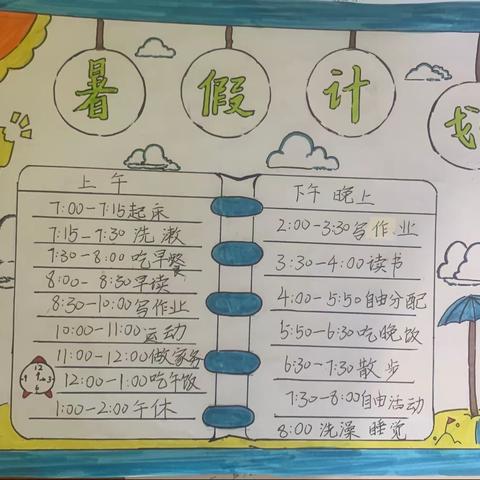 暑假计划
上午
7:00-7:15起床
7:15-7:30 洗漱
7:30-8:00吃早餐
8:00-8:30早读
8:30-10:00写作业
10:00-11:00运动
11:00-12:00做家务
12:00-1:00吃午饭
1:00-2:00午休
下午 晚上
2:00-3:30写作业
3:30-4:00读书
4:00-5:50自由分配
5:50-6:30吃晚饭
6:30-7:30散步
7:30-8:00自由活动
8:00 洗澡 睡觉